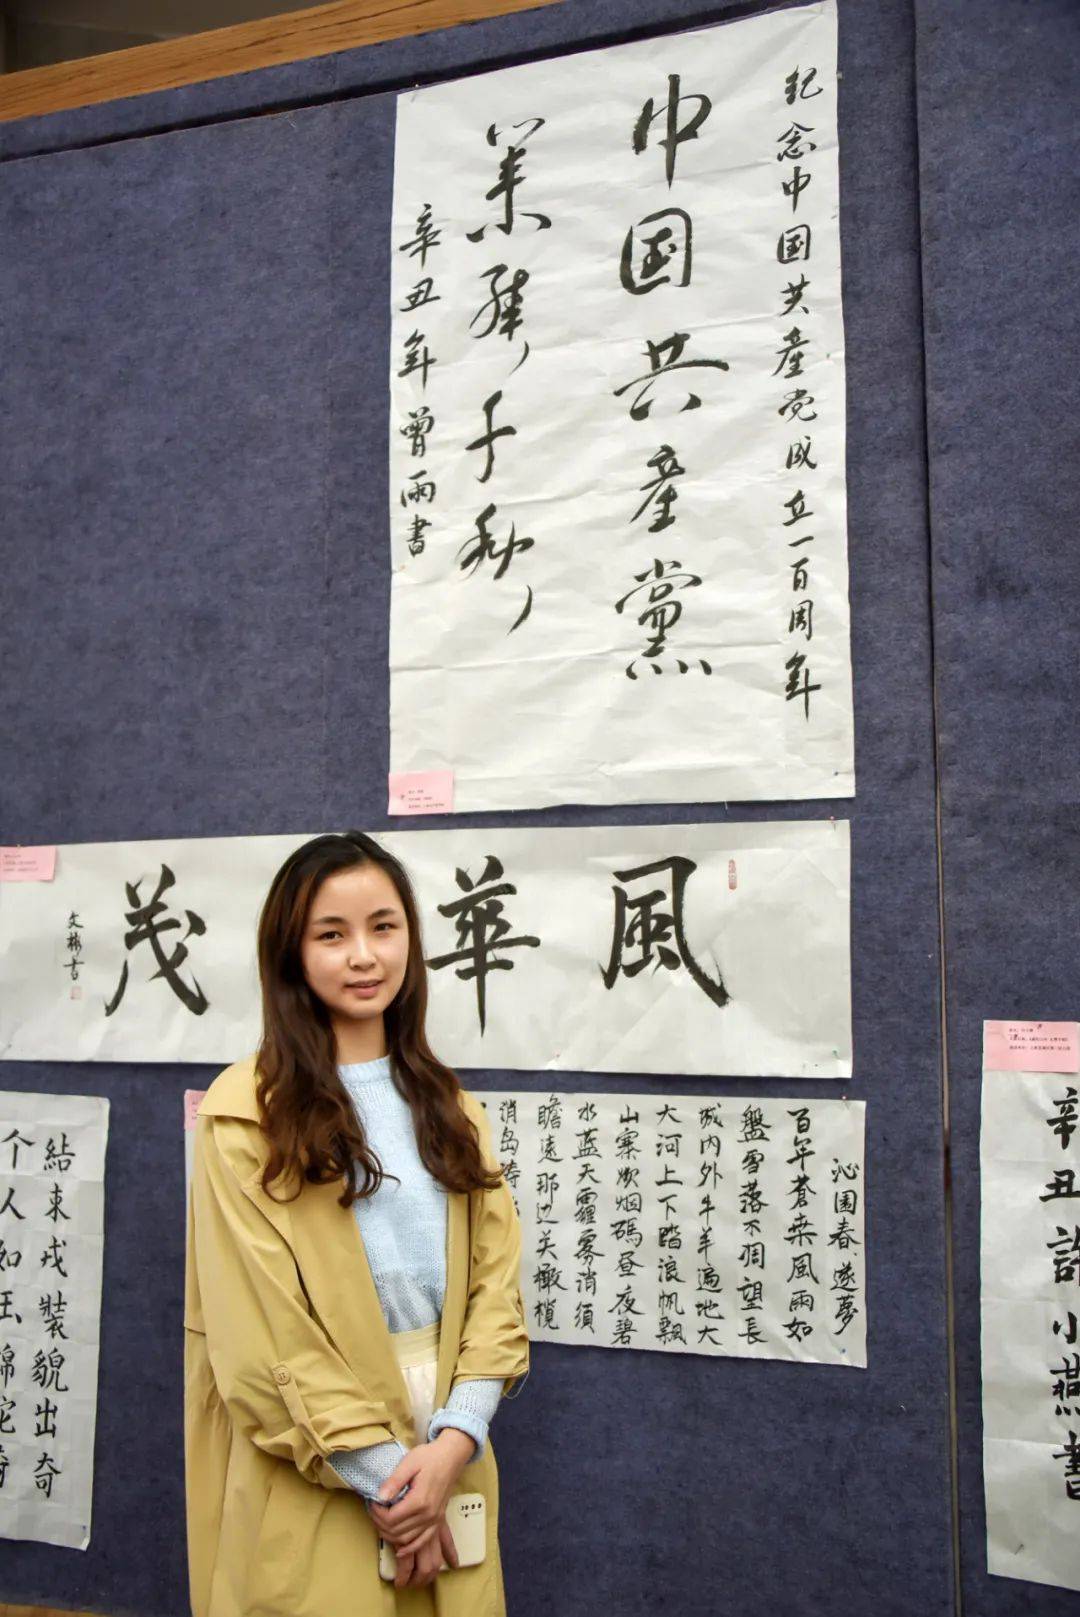 紀念中国共產党成立一百周年
中国共產黨
業輝千秋
辛丑年曾雨書
風華茂
文彬書
沁园春·逐夢
百年蒼桑風雨如
盤雪落不凋望長
城内外牛羊遍地大
大河上下踏浪帆飄
山寨炊烟碼昼夜碧
水蓝天霾雾消须
瞻遠那边美橄榄
消岛
結束戎裝貌出奇
个人如玉錦
辛丑許小燕書